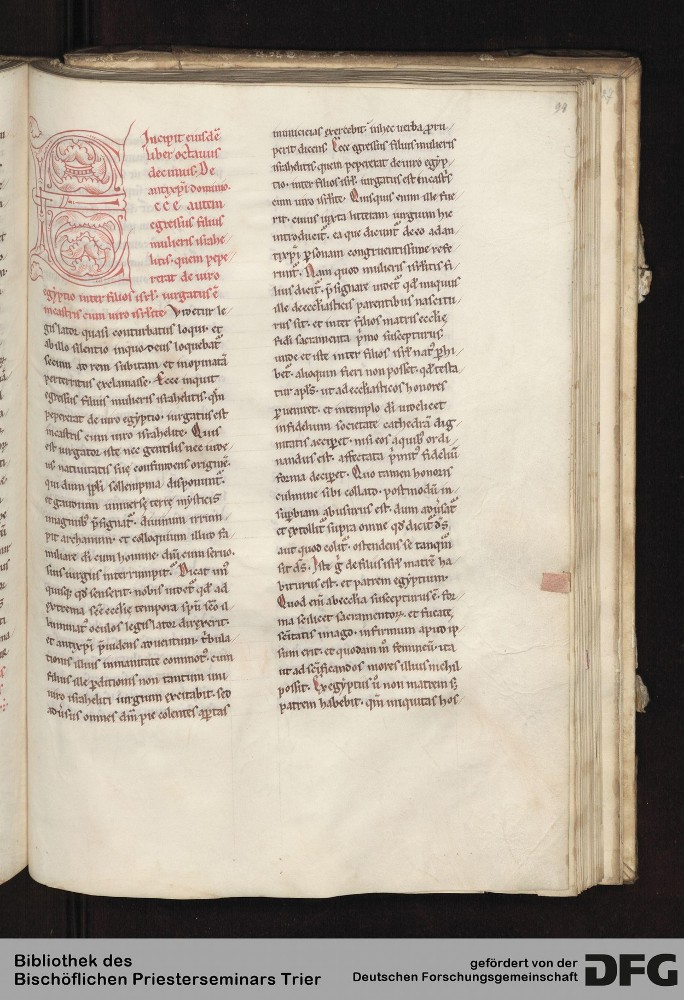 99
Incipit eiusdē
liber octauus
decimus. De
antixp̄i dominio.
ECCE autem
egressus filius
mulieris israhe
litis. quem pepe
rerat de uiro
egyptio inter filios isrl̄. iurgatus ē
in castris cum uiro isrl̄ite. Videtur le
gislator quasi conturbatus loqui. et
ab illo silentio in quo deus loquebat᷑
secum ad rem subitam et inopinatā
perterritus exclamasse. Ecce inquit
egressus filius mulieris israhelitis. quē
pepererat de uiro egyptio. iurgatus est
in castris cum uiro israhelite. Quis
est iurgator iste nec gentilis nec iude
us natiuitatis sue confundens originē.
qui dum ip̄si sollempnia disponunt᷑.
et gaudium uniuerse terre mysticis
imaginib; p̄signat᷑. diuinum irrum
pit archanum. et colloquium illud fa
miliare dī cum homine. dn̄i cum seruo.
suis iurgiis interrumpit᷑. Dicat un᷒
quisq; qd̄ senserit. nobis uidet᷑ qd̄ ad
extrema sc̄e ecclīe tempora sp̄u sc̄o il
luminat᷒ oculos legislator direxerit.
et antixp̄i p̄uidens aduentum. t̄bula
tionis illius inmanitate commot᷒. cum
filius ille perditionis non tantum uni
uiro israheliti iurgium excitabit. sed
adūsus omnes dn̄m pie colentes aptas
inimicicias exercebit. in hec uerba proru
perit dicens. Ecce egressus filius mulieris
israhelitis quem pepererat de uiro egyp
tio. inter filios isrl̄. iurgatus est in castris
cum uiro isrl̄ite. Quisquis enim ille fue
rit. cuius iuxta litteram iurgium hic
introducit᷑. ea que dicunt᷑ de eo ad an
tixp̄i p̄sonam congruentissime refe
runt᷑. Nam quod mulieris isrl̄itis fi
lius dicit᷑. p̄signare uidet᷑ qd̄ iniquus
ille de ecclesiasticis parentibus nascitu
rus sit. et inter filios matris ecclīe
fidei sacramenta p̄mo suscepturus.
unde et iste inter filios isrl̄ nat᷒ p̄hi
bet᷑. alioquin fieri non posset. qd̄ testa
tur apl̄s. ut ad ecclesiasticos honores
p̄ueniret. et in templo dī uidelicet
in fidelium societate cathedrā dig
nitatis acciperet. nisi eos a quib; ordi
nandus est. affectata p̄mit᷒ fidelium
forma deciperet. Quo tamen honoris
culmine sibi collato. postmodū in
sup̄biam abusurus est. dum aduersat᷑
et extollit᷑ supra omne qd̄ dicit᷑ ds̄.
aut quod colit᷑. ostendens se tanquā
sit ds̄. Iste g̊ de filiis isrl̄ matrē ha
biturus est. et patrem egyptium.
Quod enī ab ecclīa suscepturus ē. for
ma scilicet sacramentorꝝ. et fucate
sc̄itatis imago. infirmum apud ip
sum erit. et quodam m̊ femineū. ita
ut ad sc̄ificandos mores illius nichil
possit. Ex egyptus ū non matrem sꝫ
patrem habebit. qm̄ iniquitas hos
Bibliothek des
Bischöflichen Priesterseminars Trier
gefördert von der
Deutschen Forschungsgemeinschaft
DFG